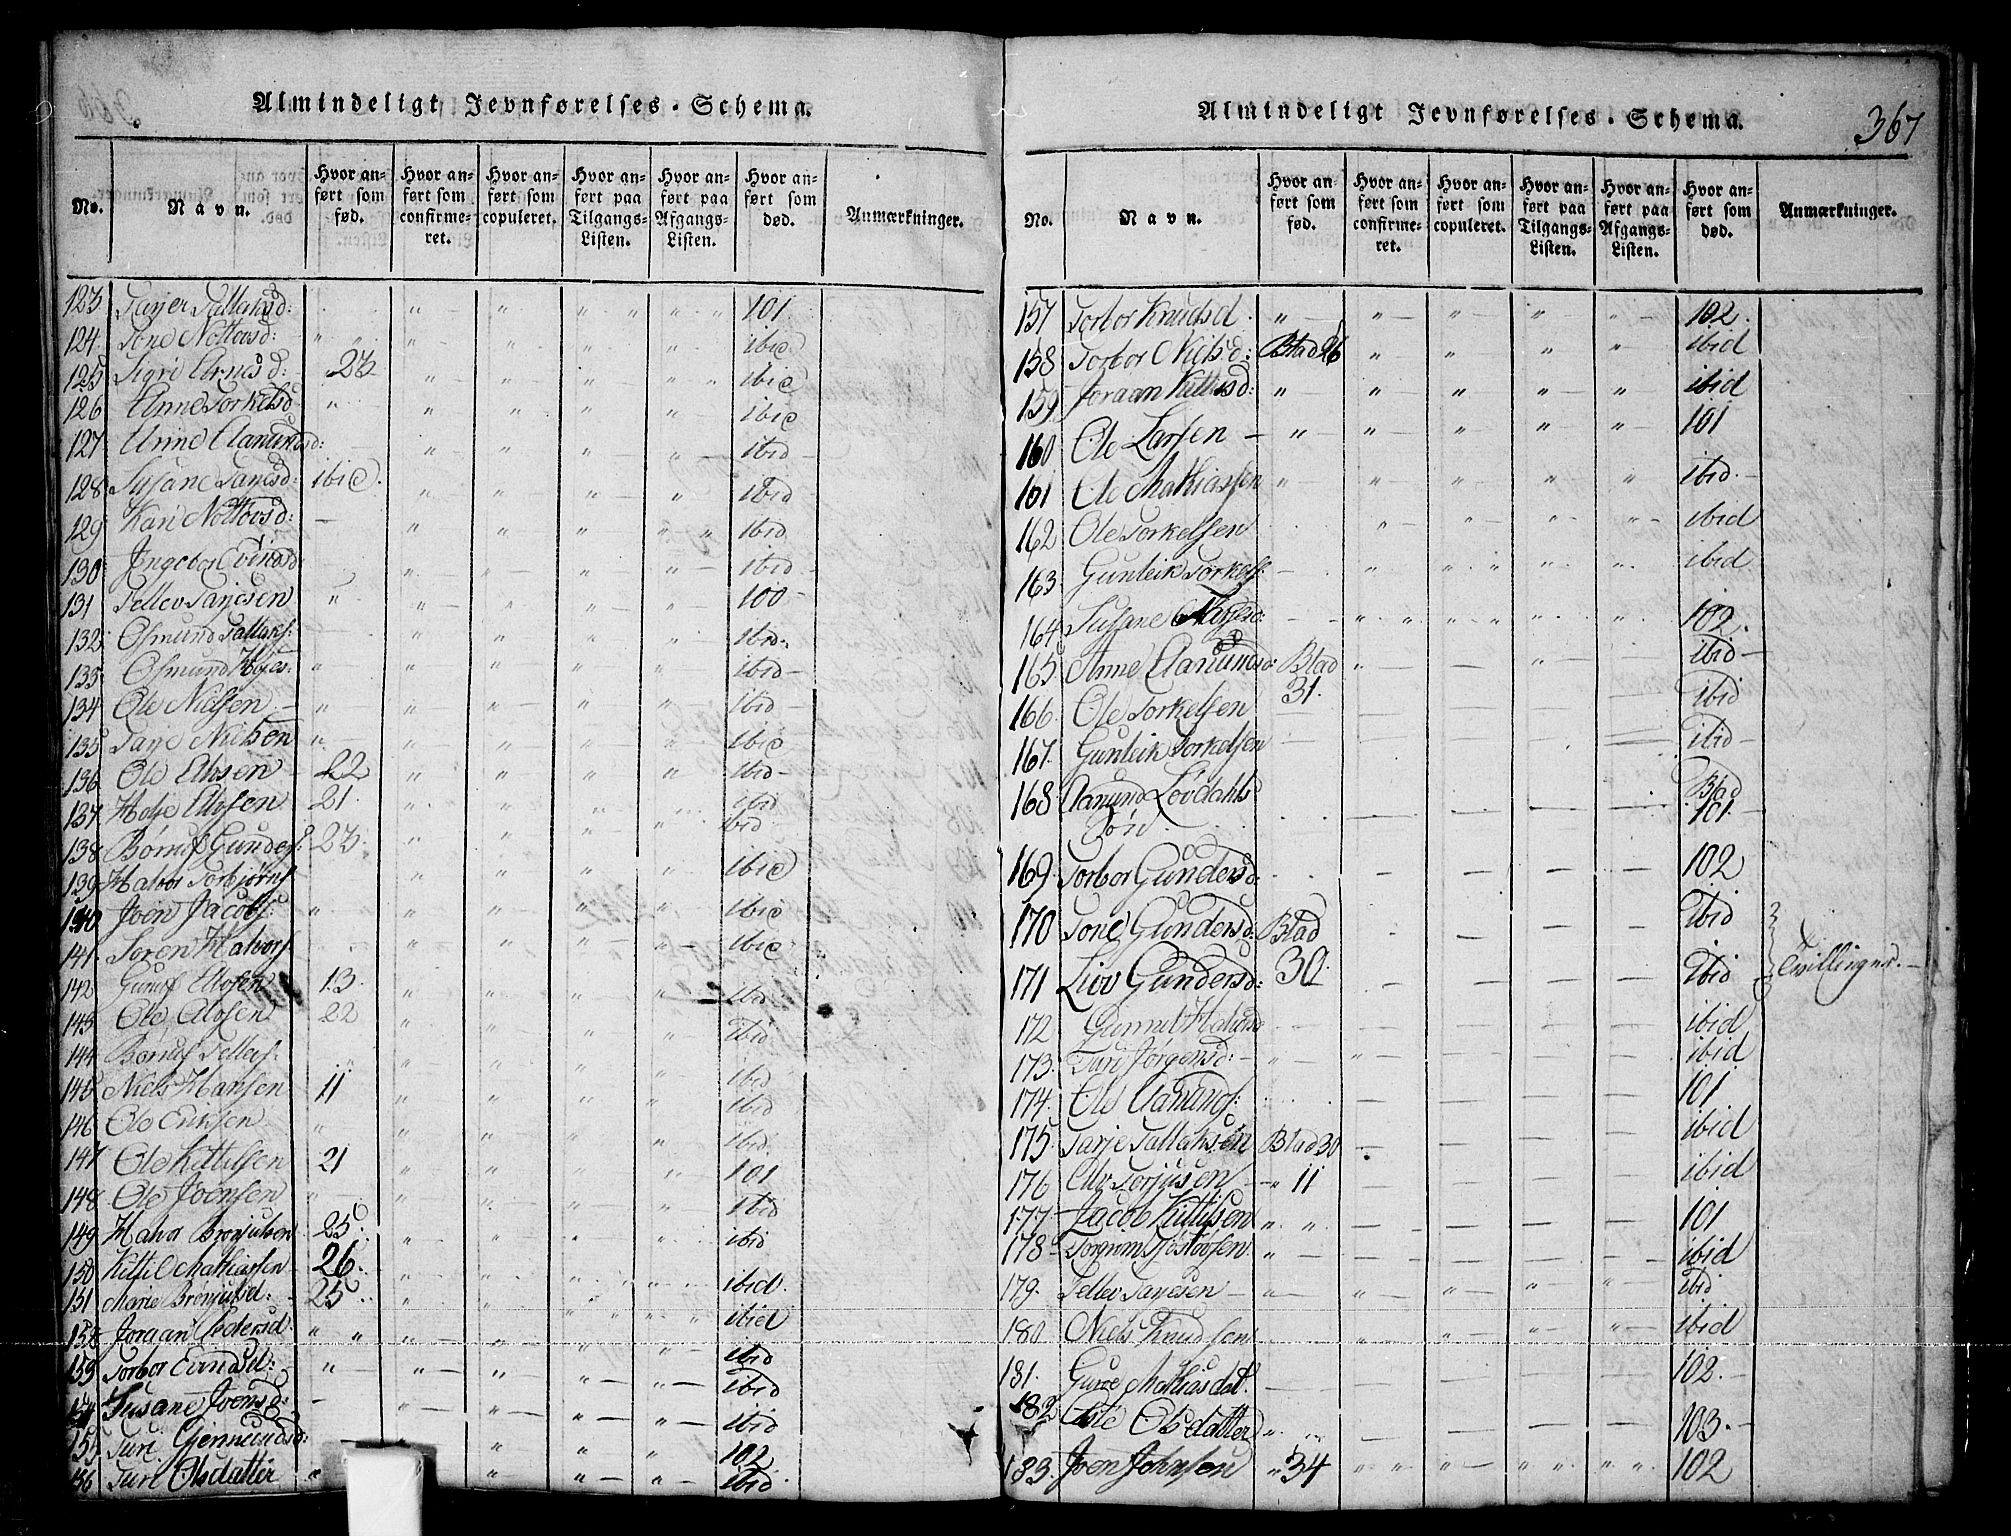 Almindeligt Jevnførelses-Schema.
No. Navn. Hvor anført som fød. Hvor anført som confirmeret. Hvor anført som copuleret. Hvor anført paa Tilgangs-Listen. Hvor anført paa Afgangs-Listen. Hvor anført som død. Anmærkninger.
123 Tarjer Tallaksd: 101
124 Tone Nottovsd: ibid
125 Sigri Arnesd: 23 ibid
126 Anne Torkelsd ibid
127 Anne Aanundsd: ibid
128 Susane Tanesd: ibid. ibid
129 Kari Nottovsd: ibid
130 Ingebor Evindsd ibid
131 Tellev Tarjesen 100
132 Osmund Tallaks: ibid
133 Osmund ibid
134 Ole Nielsen ibid
135 Tarje Nielsen ibid
136 Ole Alvsen 22 ibid
137 Holje Alvsen 21 ibid
138 Børulf Gunders: 23 ibid
139 Halvor Torbjørns ibid
140 Joen Jacobs: ibid
141 Soren Halvors ibid
142 Gunulf Alvsen 13 ibid
143 Ole Alvsen 22 ibid
144 Børulf Tellefs: ibid
145 Niels Hansen 11 ibid
146 Ole Eriksen ibid
147 Ole Kittilsen 21 101
148 Ole Joensen ibid
149 Halvor Brønjulsen 25 ibid
150 Kittil Mathiassen 26 ibid
151 Marie Brønjulsd: 25 ibid
152 Joraan Pedersd ibid
153 Torbor Evindsd: ibid
154 Susane Joensd: ibid
155 Turi Gjermundsd: 102
156 Turi Olsdatter ibid
Almindeligt Jevnførelses-Schema. 367
No. Navn. Hvor anført som fød. Hvor anført som confirmeret. Hvor anført som copuleret. Hvor anført paa Tilgangs-Listen. Hvor anført paa Afgangs-Listen. Hvor anført som død. Anmærkninger.
157 Torbor Knudsd 102
158 Torbor Nielsd: Blad 26 ibid
159 Joraan Kittilsd: ibid
160 Ole Larsen 101
161 Ole Mathiassen ibid
162 Ole Torkelsen ibid
163 Gunleik Torkels: ibid
164 Susane 102
165 Anne Aanundsd: Blad ibid
166 Ole Torkelsen 31. ibid
167 Gunleik Torkelsen ibid
168 Aanund Løvdahls Blad
Søn 101
169 Torbor Gundersd: 102
170 Tone Gundersd: Blad ibid
171 Liov Gundersd: 30. ibid Tvillinger.
172 Gunnil Halvorsd ibid
173 Turi Jørgensd: ibid
174 Ole Aanunds: 101
175 Tarje Tallaksen Blad 30 ibid
176 Alv Torjusen 11 ibid
177 Jacob Kittilsen 101
178 Torgrim Tjøstovsen ibid
179 Tellev Tanesen ibid
180 Niels Knudsen ibid
181. Guroe Mathiasdat. 102
182 Aste Olsdatter 103.
183. Joen Johnsen 34 102